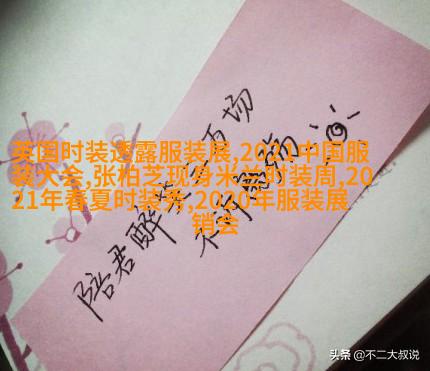 英国时装透露服装展,2021中国服
装大会,张柏芝现身米兰时装周,20
21年春夏时装秀,2020年服装展
销会
陪君醉笑场
不诉离殇
头条 @不二大叔说